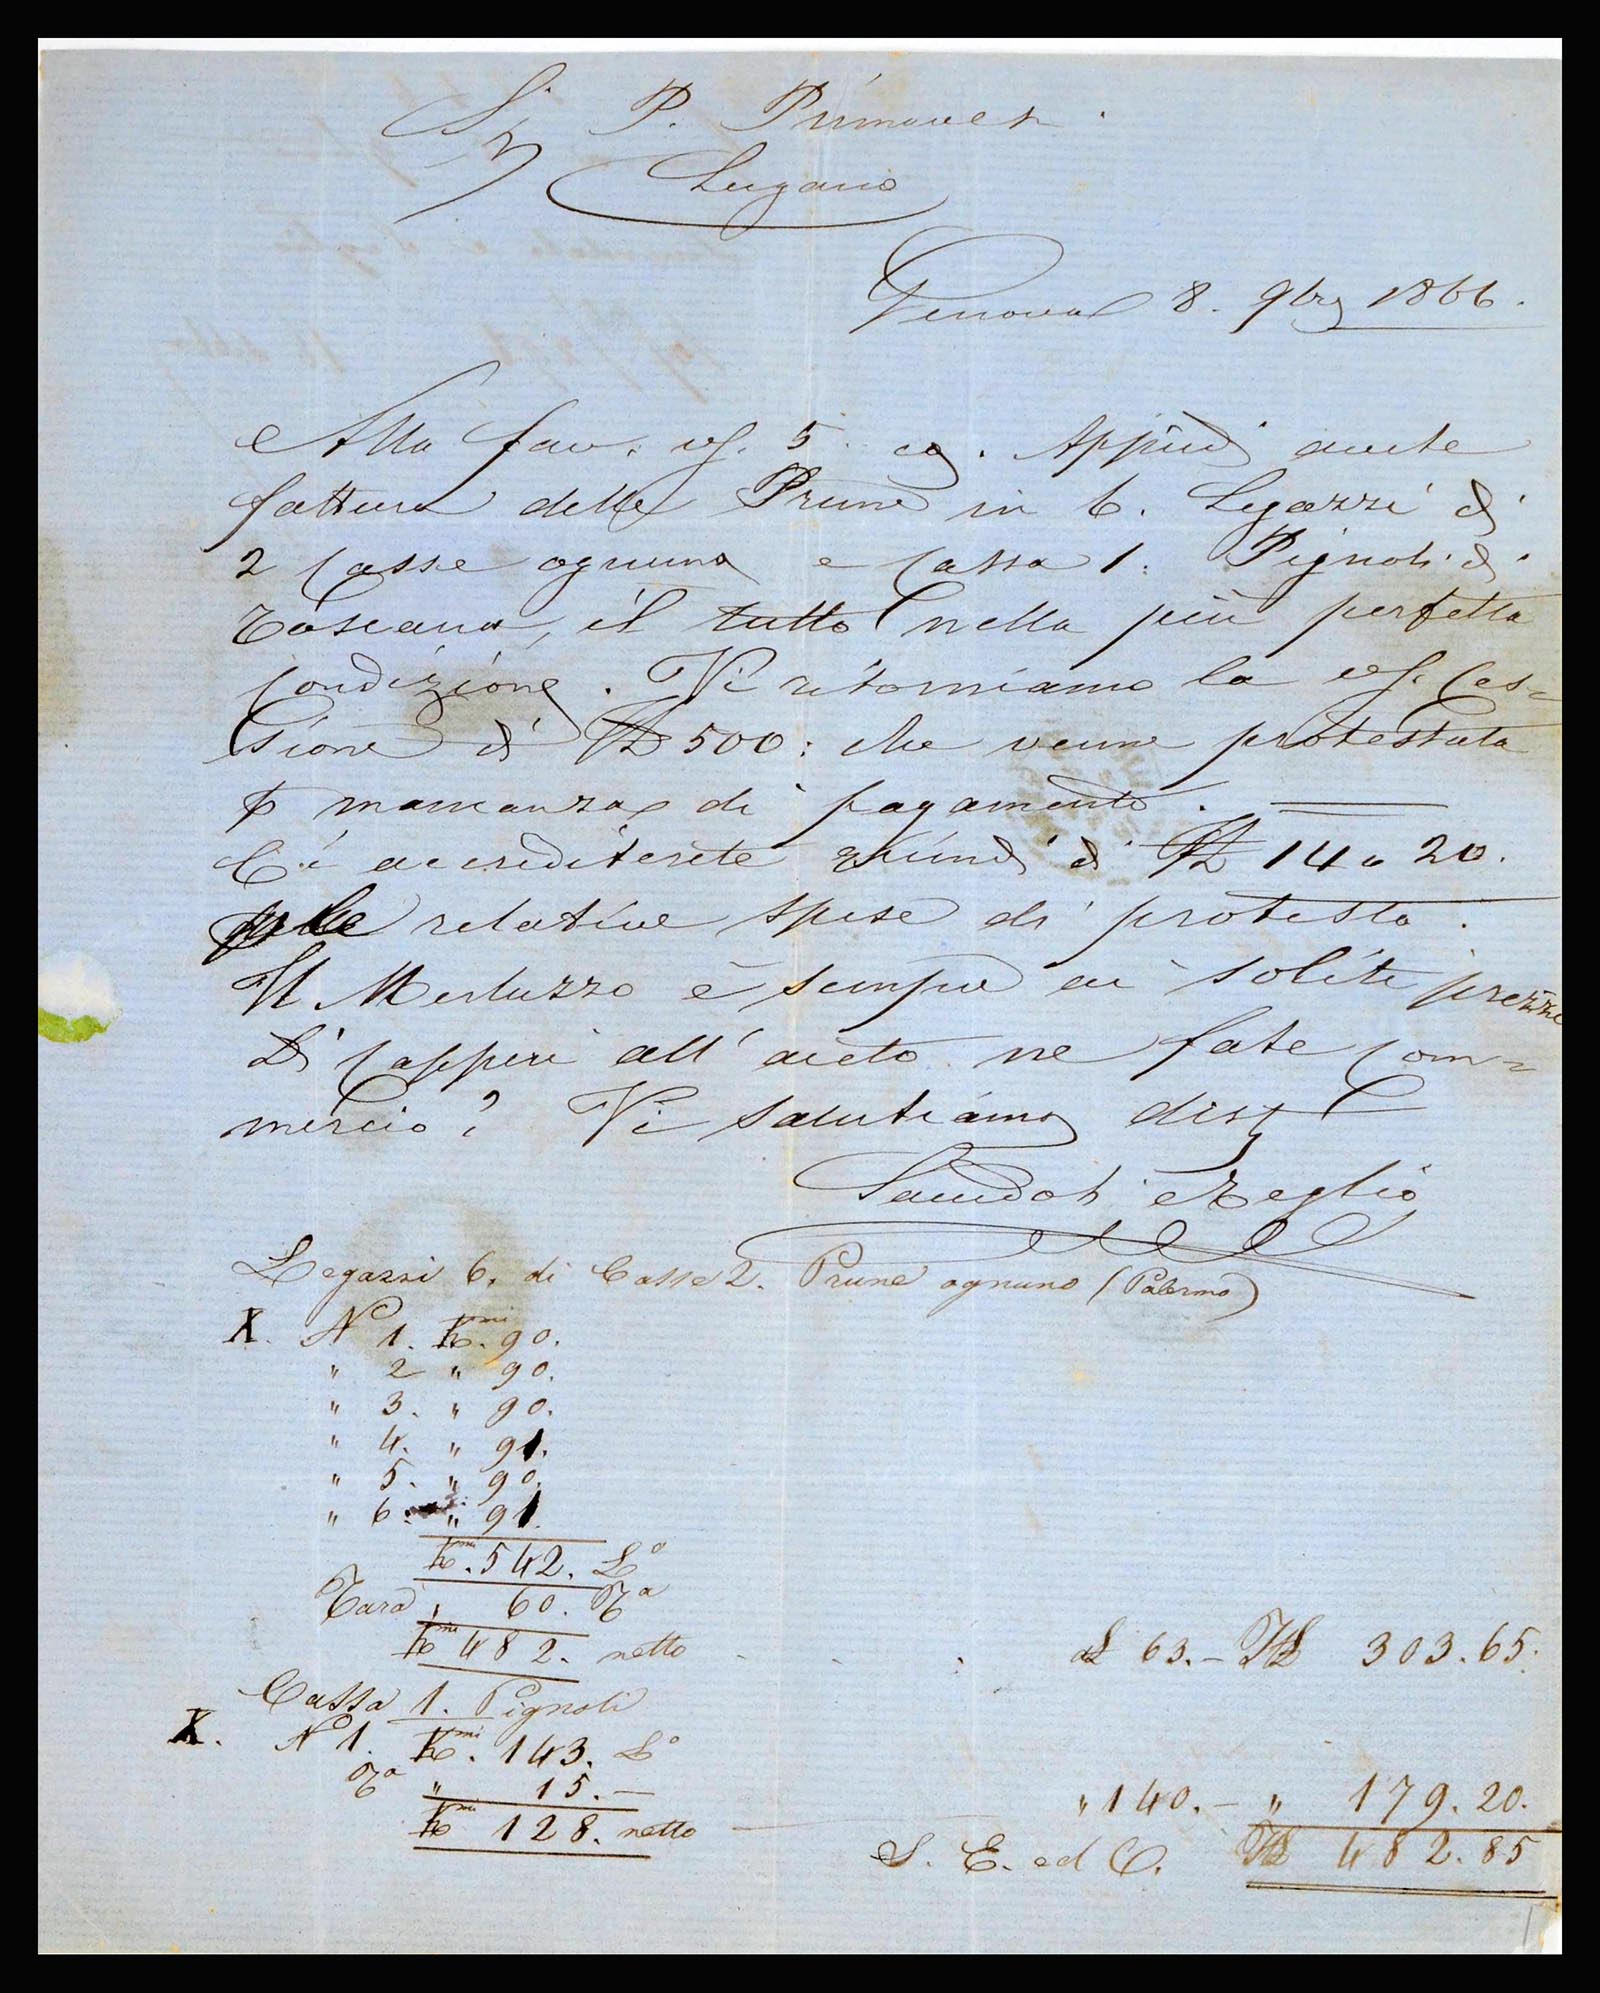 Sig. P. Primavesi.
Lugano
Genova 8. 9bre 1866.
Alla fav. vs. 5. cg. Appiedi avete
fattura delle Prune in 6. Legazzi di
2 Casse ognuna e Cassa 1. Pignoli di
Toscana, il tutto nella più perfetta
Condizione. Vi ritorniamo la vs. Ces-
sione di 500: che venne protestata
p mancanza di pagamento.
Ci accrediterete quindi di 14 20.
p le relative spese di protesto.
Il Merluzzo è sempre ai soliti prezzi
Di Capperi all'aceto ne fate Com-
mercio? Vi salutiamo dist
Zeglio
Legazzi 6. di Casse 2. Prune ognuno (Palermo)
X. No 1. Kmi. 90.
" 2 " 90.
" 3. " 90.
" 4. " 91.
" 5. " 90.
" 6. " 91.
Kmi. 542. Lo
Tara " 60. Ta
Kmi 482. netto . . . a £ 63.- 303.65.
Cassa 1. Pignoli
X. No 1. Kmi. 143. Lo
Ta " 15.-
Kmi 128. netto — " 140.- " 179.20.
S. E. ed O. 482.85